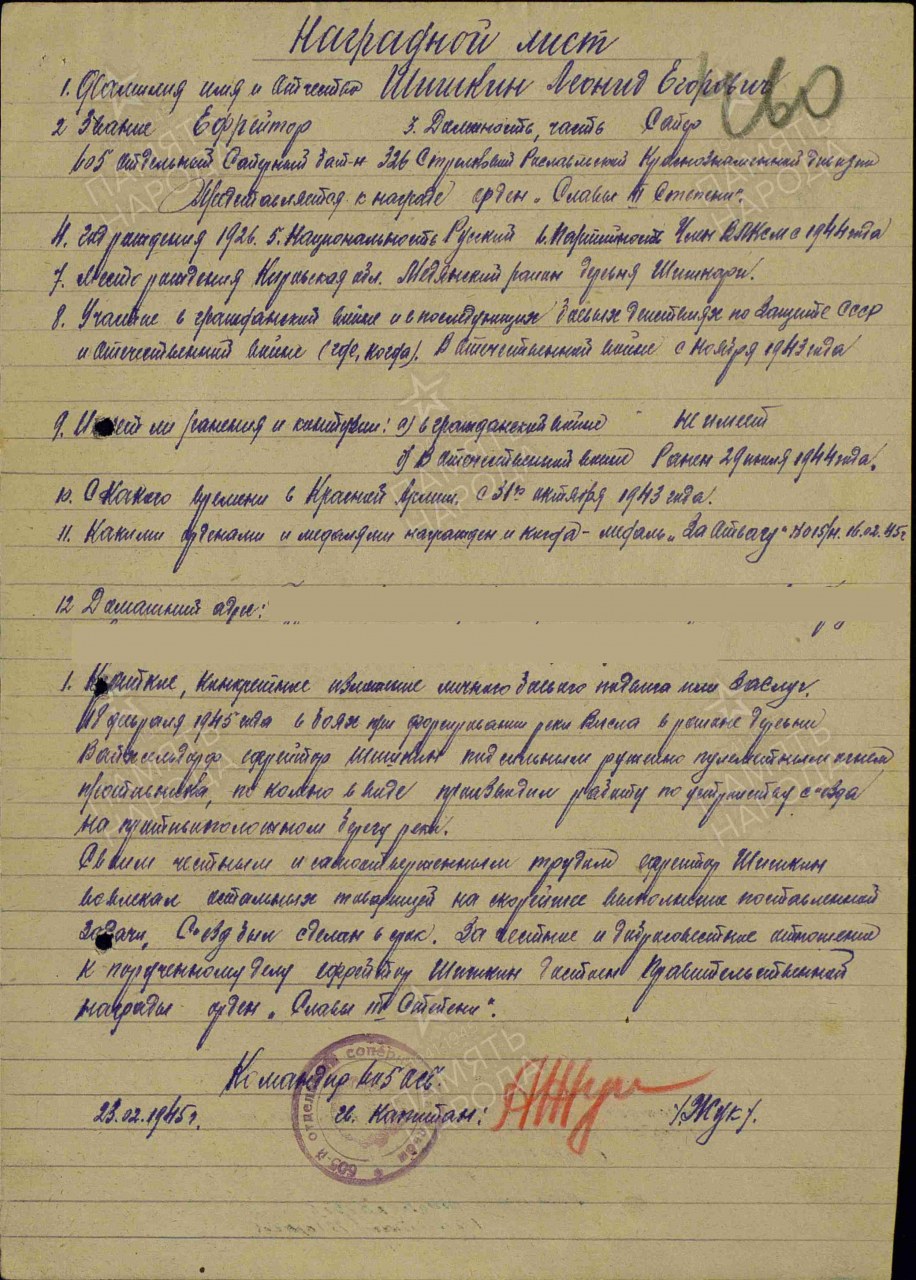 Наградной лист
460
1. Фамилия имя и отчество Шишкин Леонид Егорович
2 Звание Ефрейтор 3. Должность, часть Сапер
605 отдельный Саперный бат-н 326 Стрелковой Рославльской Краснознаменной дивизии
Представляется к награде орден „Славы III Степени".
4. Год рождения 1926. 5. Национальность Русский 6. Партийность Член ВЛКСМ с 1944 года
7. Место рождения Кировская обл. Медянский район деревня Шишкари.
8. Участие в гражданской войне и в последующих боевых действиях по Защите СССР
и отечественной войне (где, когда). В отечественной войне с ноября 1943 года
9. Имеет ли ранения и контузии: а) в гражданской войне не имеет
б) В отечественной войне Ранен 29 июля 1944 года.
10. С Какого времени в Красной Армии. с 31го октября 1943 года.
11. Какими орденами и медалями награжден и когда - медаль „За Отвагу" 16.02.45г
12 Домашний адрес:
1. Краткое, конкретное изложение личного боевого подвига или Заслуг.
февраля 1945 года в боях при форсировании реки Висла в районе деревни
ефрейтор Шишкин под сильным ружейно пулеметным огнем
противника, по колено в воде производил работу по устройству съезда
на противоположном берегу реки.
Своим честным и самоотверженным трудом ефрейтор Шишкин
вовлекал остальных товарищей на скорейшее выполнение поставленной
Задачи. Съезд был сделан в срок. За честное и добросовестное отношение
к порученному делу ефрейтор Шишкин достоин Правительственной
награды орден „Славы III Степени".
Командир 605 ОСБ.
23.02.1945г. Капитан: /Жук/.
605-й отдельный саперный
ПАМЯТЬ НАРОДА